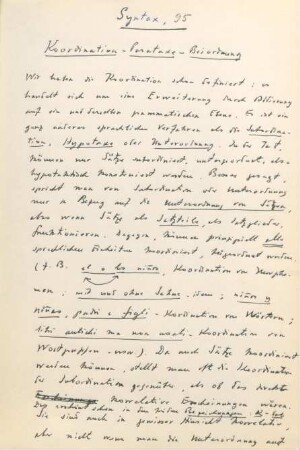 Syntax, 95
Koordination - Parataxe - Beiordnung
Wir haben die Koordination schon definiert: es
handelt sich um eine Erweiterung durch Addierung
auf ein und derselben grammatischen Ebene. Es ist ein
ganz anderes sprachliches Verfahren als die Subordina-
tion, Hypotaxe oder Unterordnung. In der Tat,
können nur Sätze subordiniert, untergeordnet, also
hypotaktisch konstruiert werden. Besser gesagt,
spricht man von Subordination oder Unterordnung
nur in Bezug auf die Unterordnung von Sätzen,
also wenn Sätze als Satzteile, als Satzglieder,
funktionieren. Dagegen können prinzipiell alle
sprachlichen Einheiten koordiniert, beigeordnet werden
(z. B. el o los niños, Koordination von Morphe-
men, mit und ohne Sahne, idem; niños y
niñas, padri e figli - Koordination von Wörtern;
Koordination von
Wortgruppen - usw.). Da auch Sätze koordiniert
werden können, stellt man oft die Koordination
der Subordination gegenüber, als ob das
korrelative Erscheinungen wären.
Sie sind auch in gewisser Hinsicht korrelativ,
aber nicht wenn man die Unterordnung auf